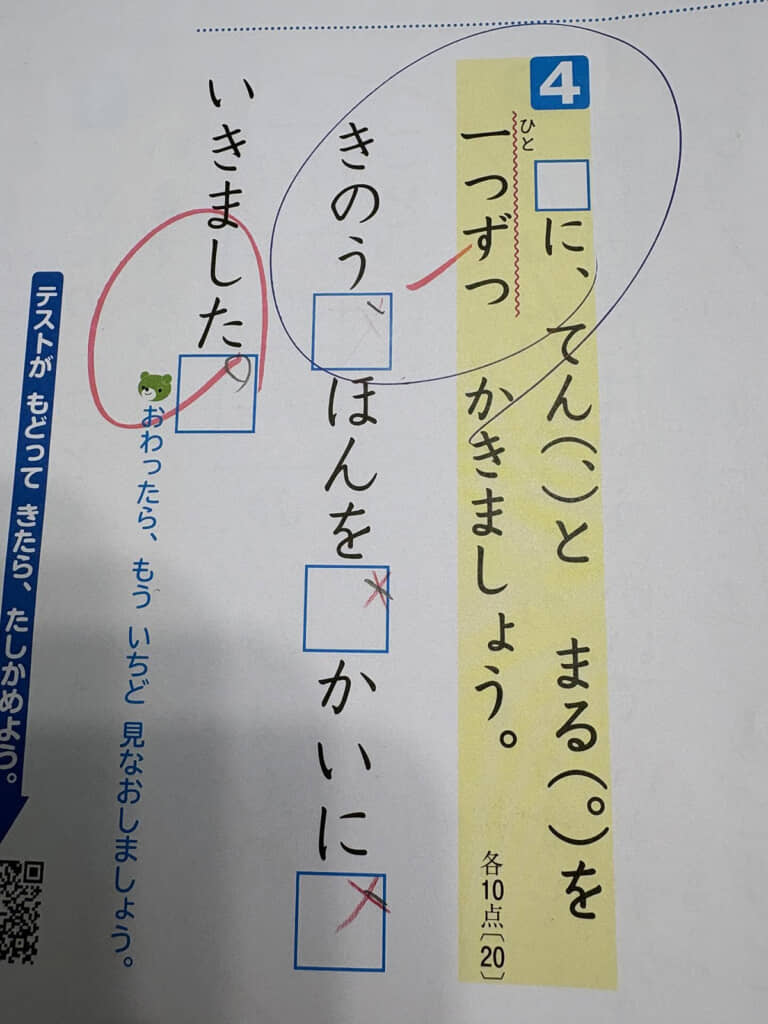 4
□に、てん(、)と まる(。)を
一つずつ かきましょう。
ひと
各10点〔20〕
きのう□、ほんを□かいに□
いきました□。
おわったら、もう いちど 見なおしましょう。
テストが もどって きたら、たしかめよう。